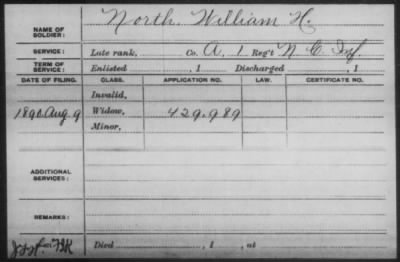 NAME OF SOLDIER: North, William H.
SERVICE: Late rank, Co. A, 1 Reg't N. C. Inf.
TERM OF SERVICE: Enlisted , 1 Discharged , 1
DATE OF FILING. CLASS. APPLICATION NO. LAW. CERTIFICATE NO.
Invalid,
1890 Aug. 9 Widow, 429.989
Minor,
ADDITIONAL SERVICES:
REMARKS:
Died , 1 , at